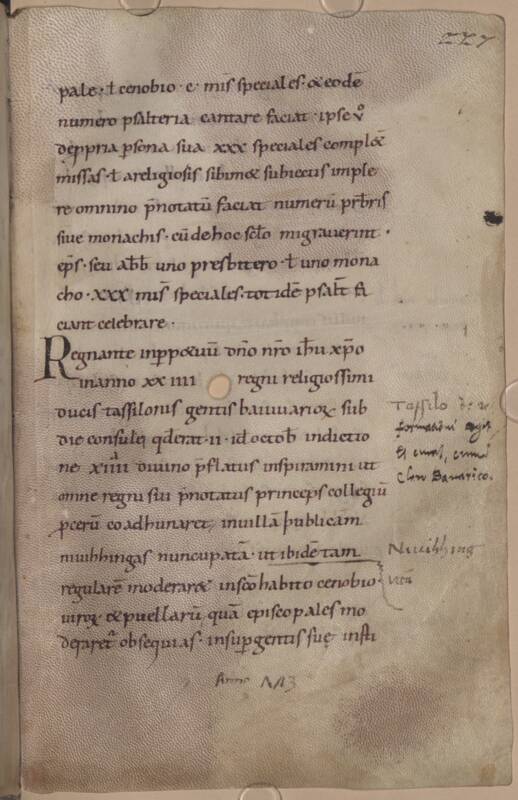 pale · ł cenobio · c · mis̄ speciales · & eodē
numero psalteria cantare faciat · ipse v̊
de ꝓpria ꝑsona sua xxx speciales compl&
missas · ł a religiosis sibim& subiectis imple
re omnino p̄notatū faciat numerū prb̄ris
siue monachis · cū de hoc sc̄lo migrauerint ·
ep̄s · seu abb̄ uno presbitero · ł uno mona
cho · xxx mis̄ speciales · totidē psalt̄ fa
ciant celebrare ·
Regnante inꝑpetuū dn̄o nr̄o ihū xp̄o
in anno xx iiii regni religiossimi
ducis tassilonis gentis baiuuarioꝝ sub
die consule qđ erat · ii · id octob̄ indictio
ne xiiii diuino p̄flatus inspiramini ut
omne regnū sui p̄notatus princeps collegiū
ꝓcerū coadhunaret, in uillā publicam
niuihhingas nuncupatā · ut ibidē tam
regularē moderar& in sc̄o habito cenobio
uiroꝝ & puellarū, quā episcopales mo
derar&ᷣ obsequias · insuꝑ gentis suę insti
Tassilo
Cleri Bauarico.
Niuihhing